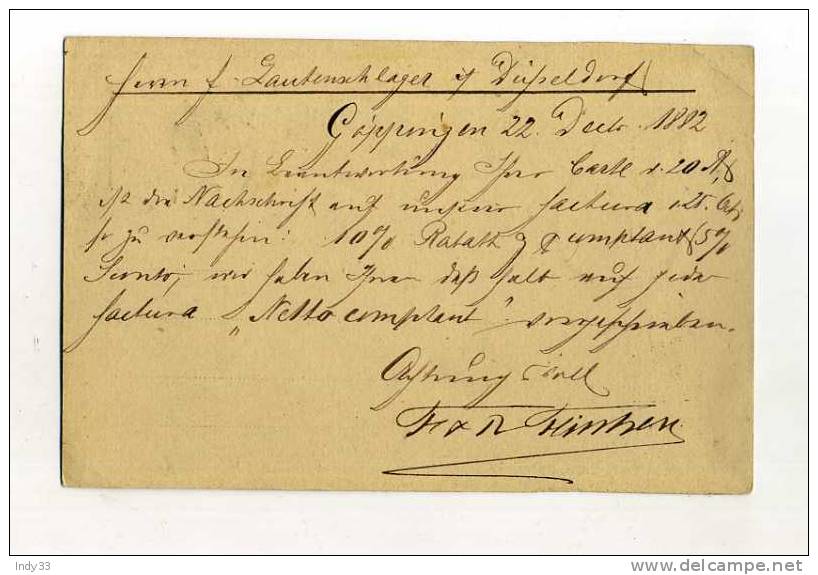 Herrn F. Lautenschlager Düsseldorf
Göppingen 22. Decbr. 1882
In Beantwortung Ihrer Carte v. 20
ist die Nachschrift auf unserer Factura v. 25. Octb.
so zu verstehen: 10% Rabatt & comptant 5%
Sconto, wir haben Ihnen deßhalb auf jeder
Factura „Netto comptant" vorgeschrieben.
Achtungsvoll
Indy33
delcampe.net